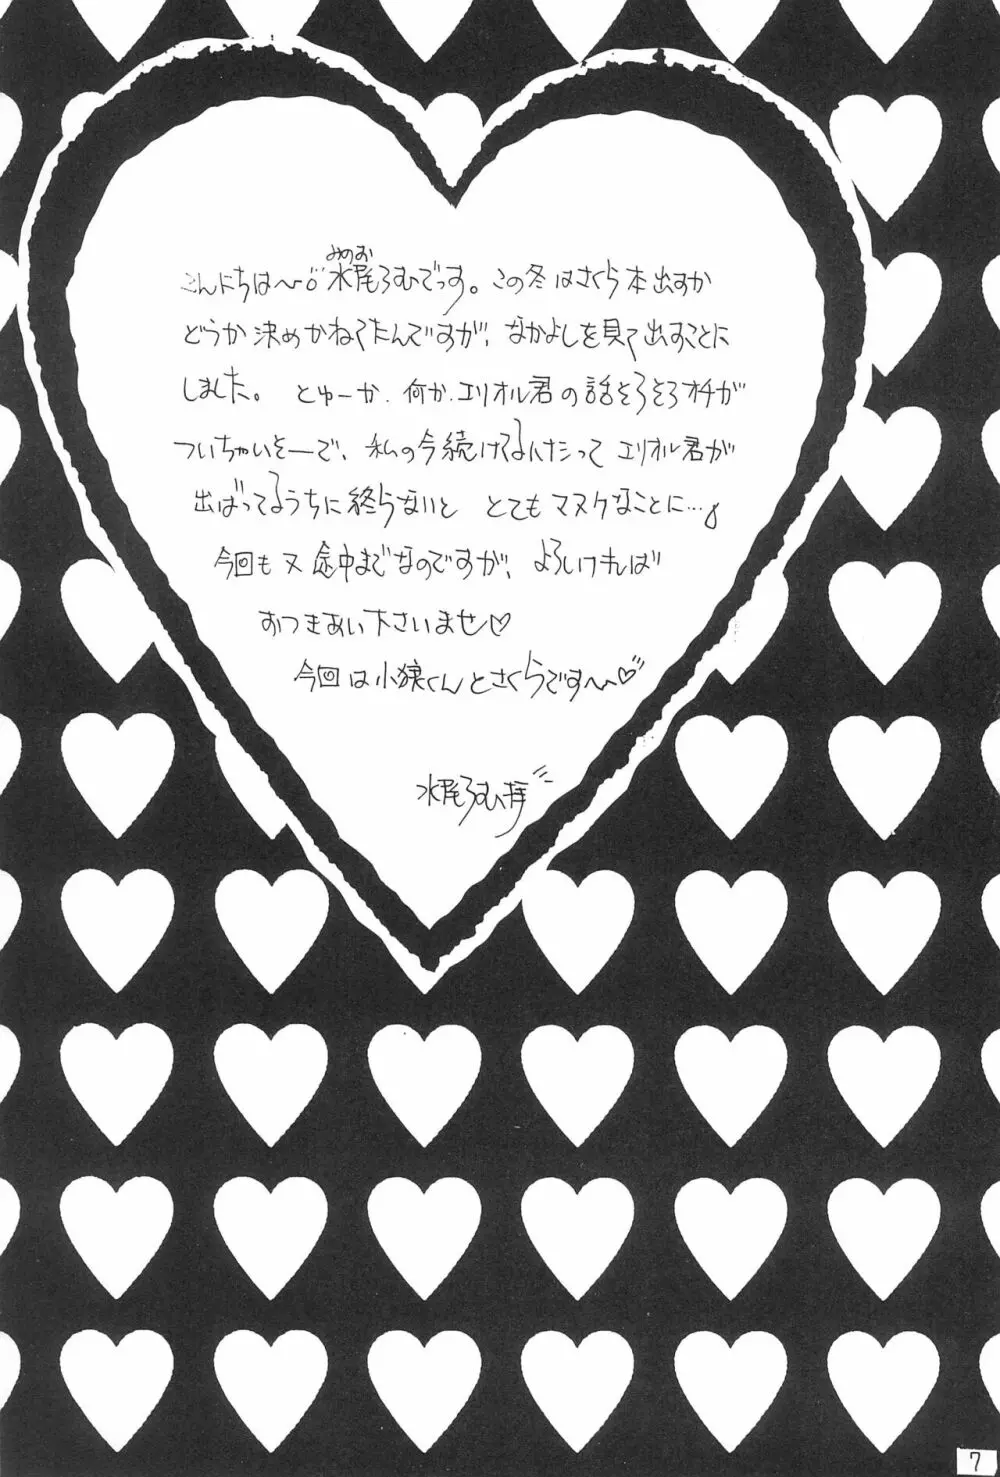 みのお
こんにちは〜♡水尾ろむでっす。この冬はさくら本出すか
どうか決めかねてたんですが、なかよしを見て出すことに
しました。とゅーか、何か、エリオル君の話そろそろオチが
ついちゃいそーで、私の今続けてるんだって エリオル君が
出ばってるうちに終らないと とてもマヌケなことに…
今回も又途中までなのですが、よろしければ
おつきあい下さいませ♡
今回は小狼くんとさくらです〜♡
水尾ろむ拝
7